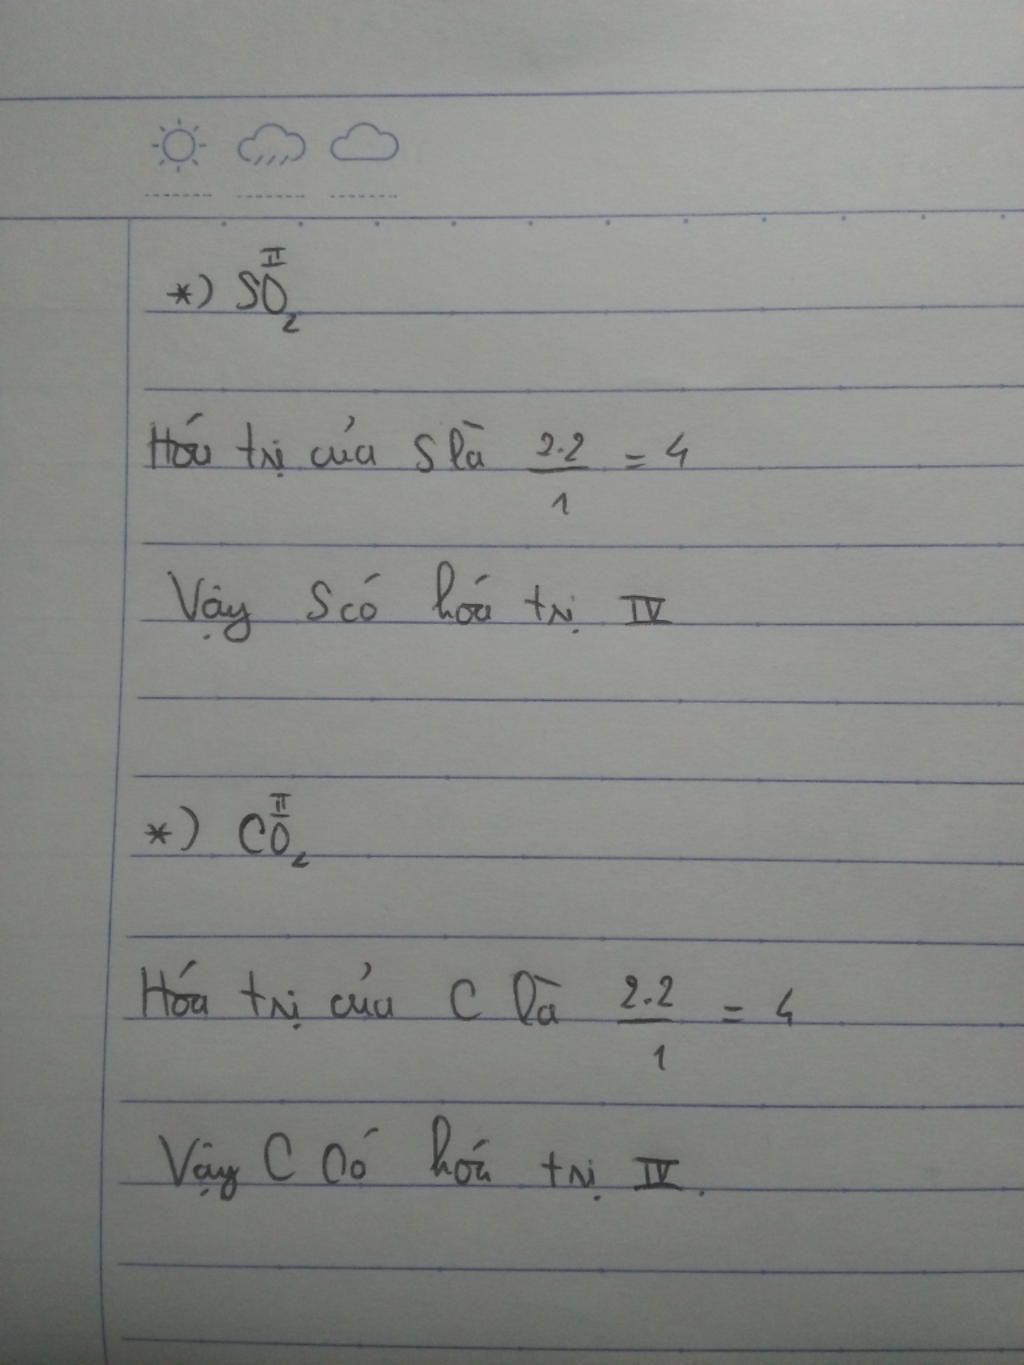 *) SO₂ II
Hóa trị của S là 2.2/1 = 4
Vậy S có hóa trị IV
*) CO₂ II
Hóa trị của C là 2.2/1 = 4
Vậy C có hóa trị IV.